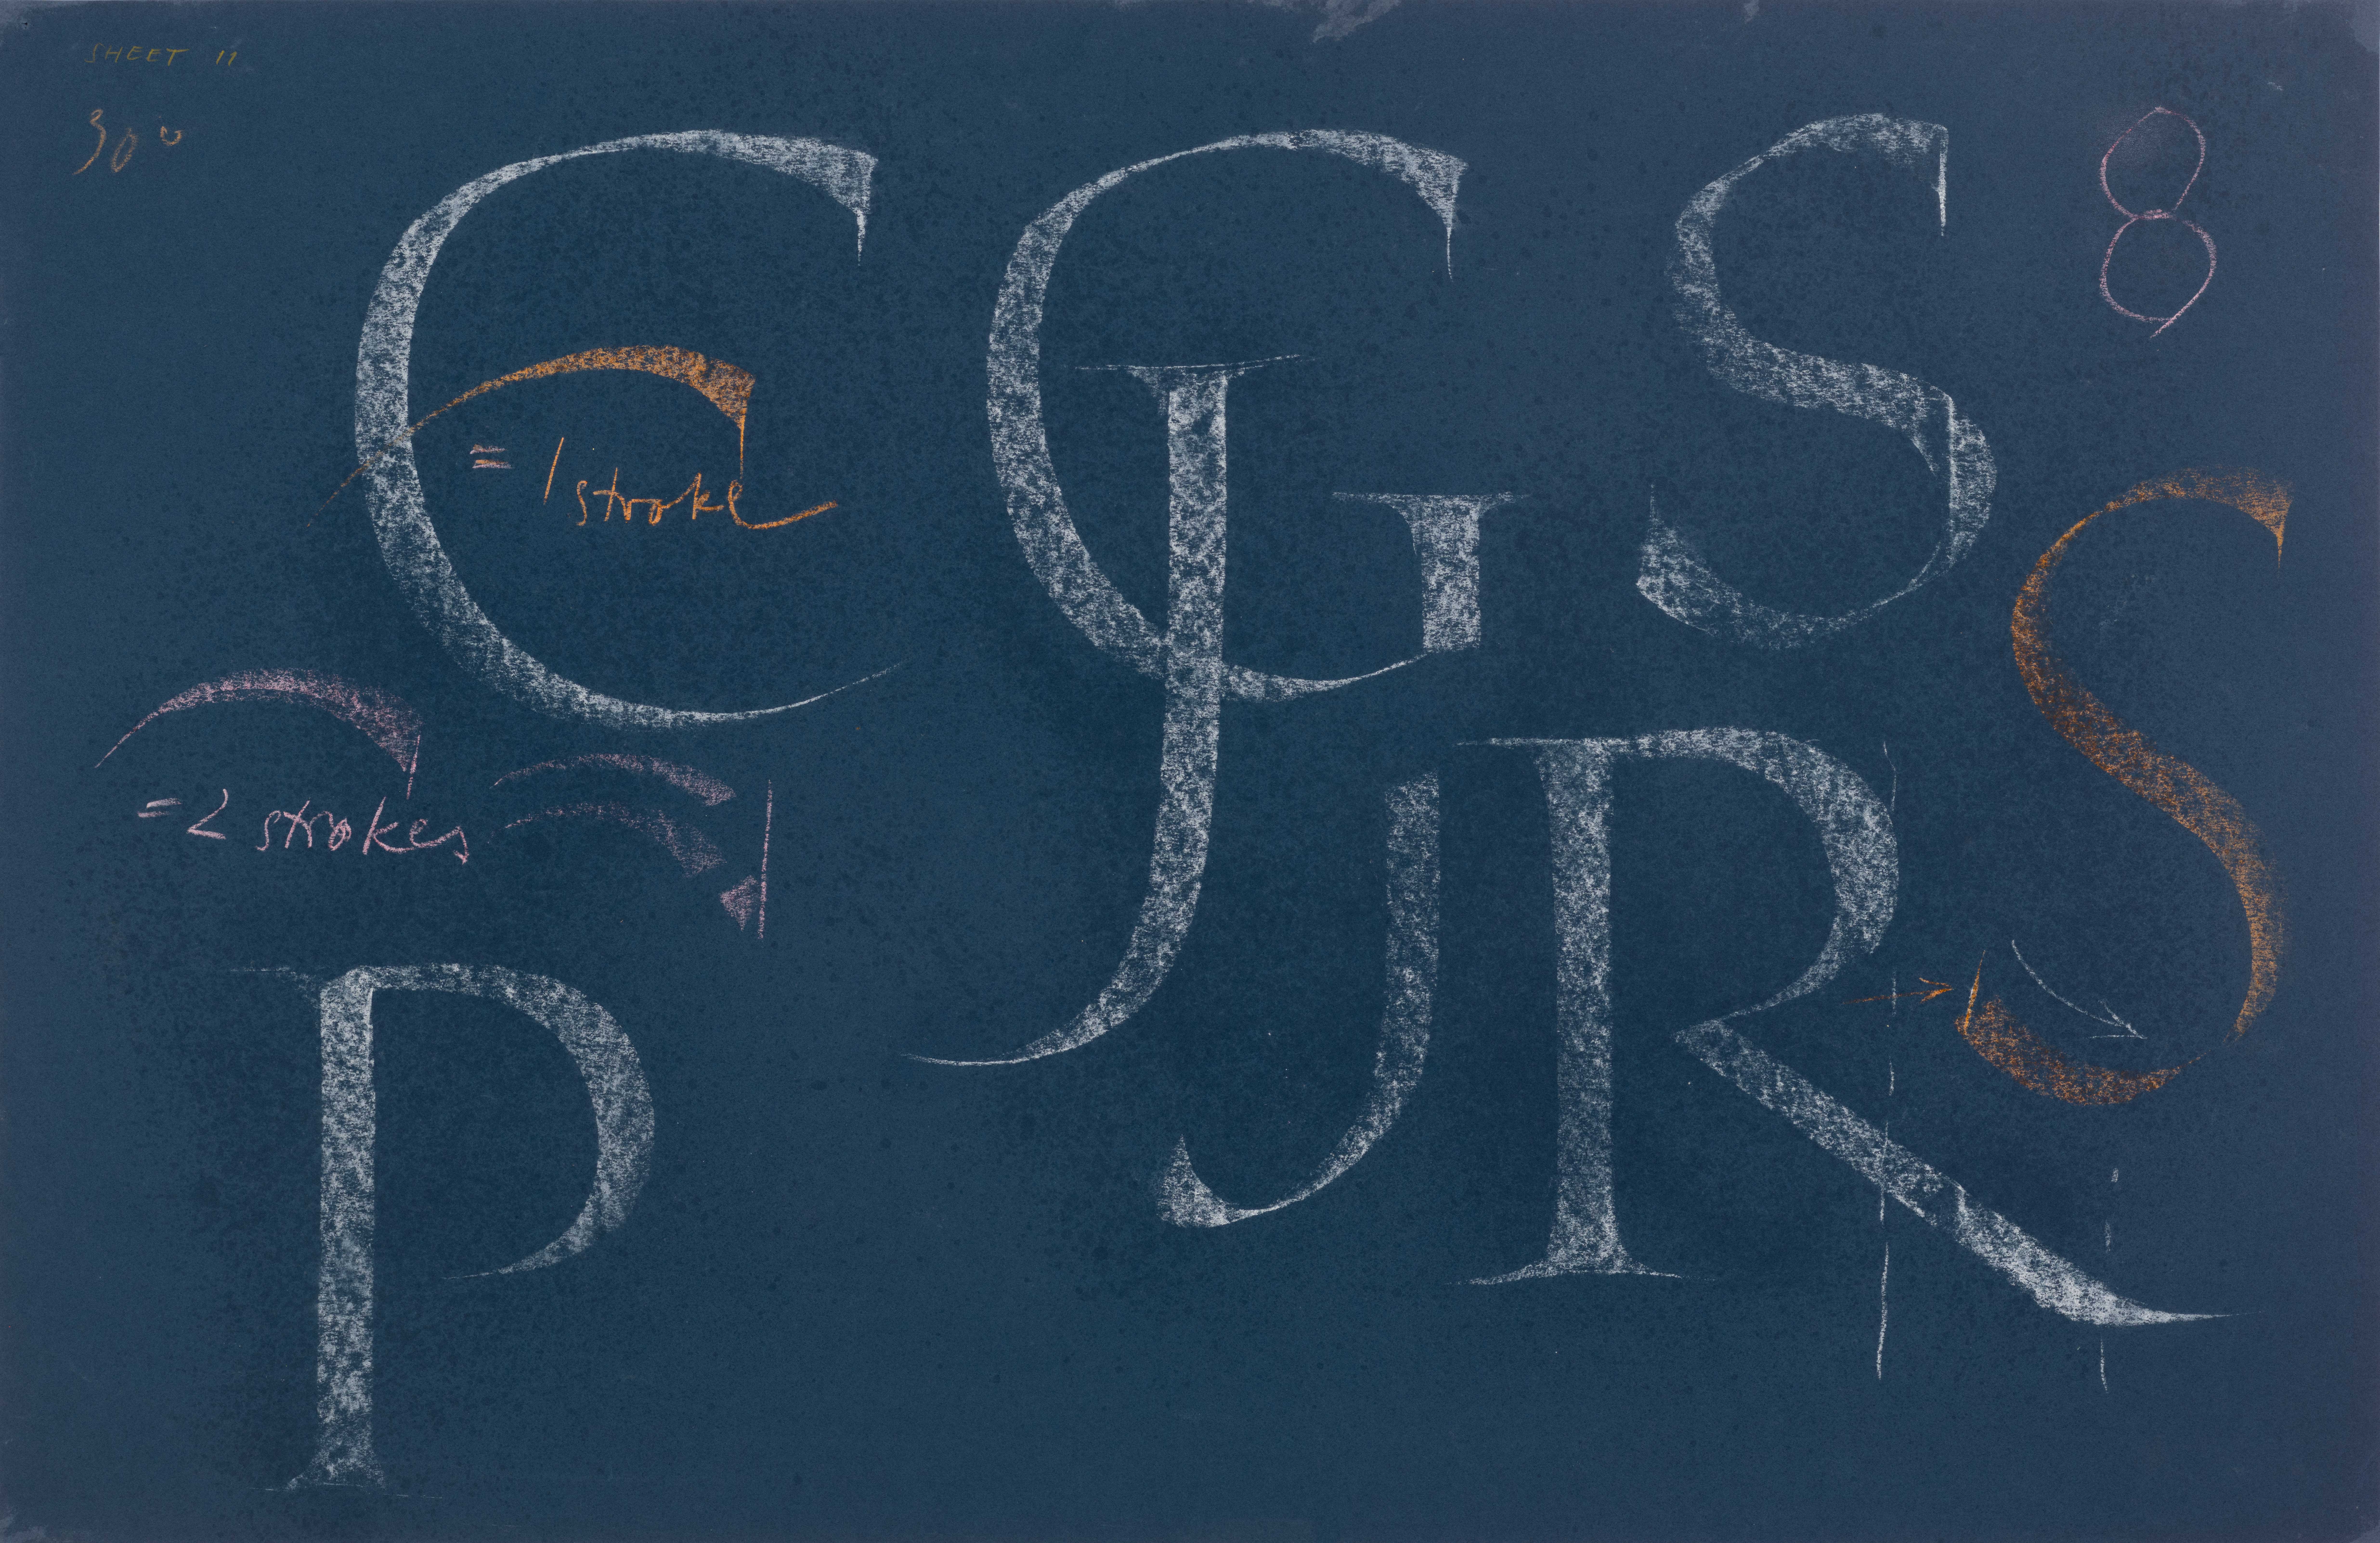 SHEET 11
30°
C G S 8
= 1 stroke
J S
= 2 strokes
J R
P